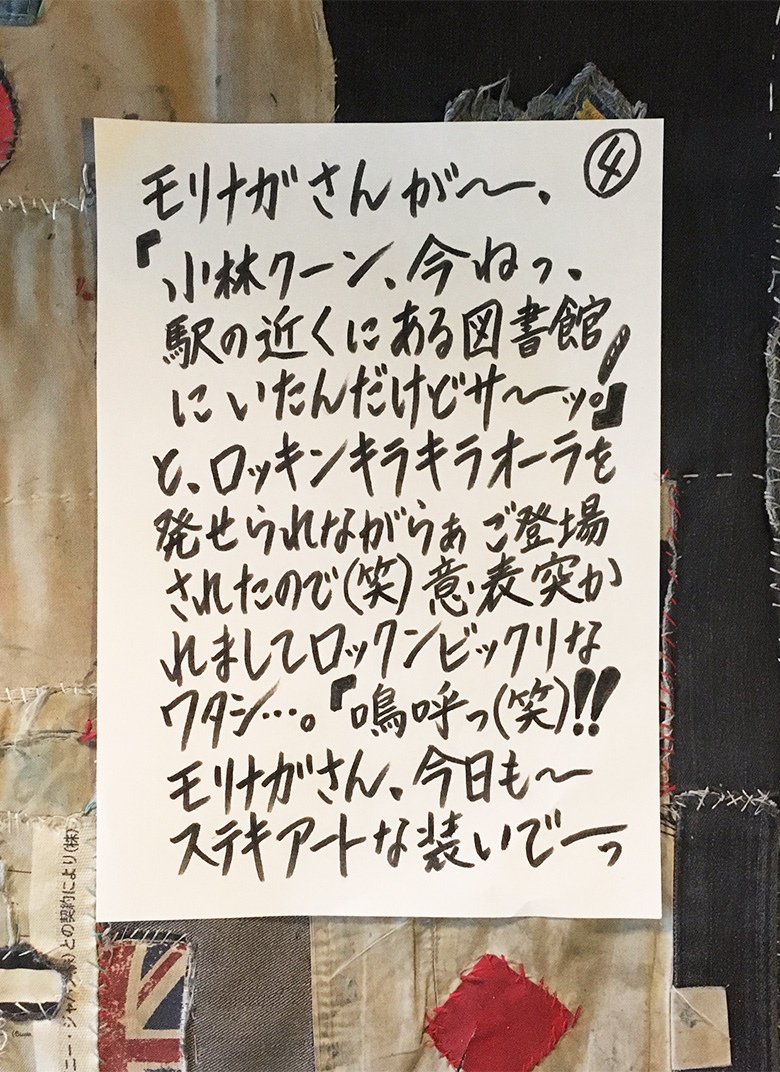 ④
モリナガさんが〜、
『小林クーン、今ねっ、
駅の近くにある図書館
にいたんだけどサ〜ッ。!』
と、ロッキンキラキラオーラを
発せられながらぁご登場
されたので(笑)意表突か
れましてロックンビックリな
ワタシ…。『嗚呼っ(笑)!!
モリナガさん、今日も〜
ステキアートな装いでーっ
ニー・ジャパン(株)との契約により(株)